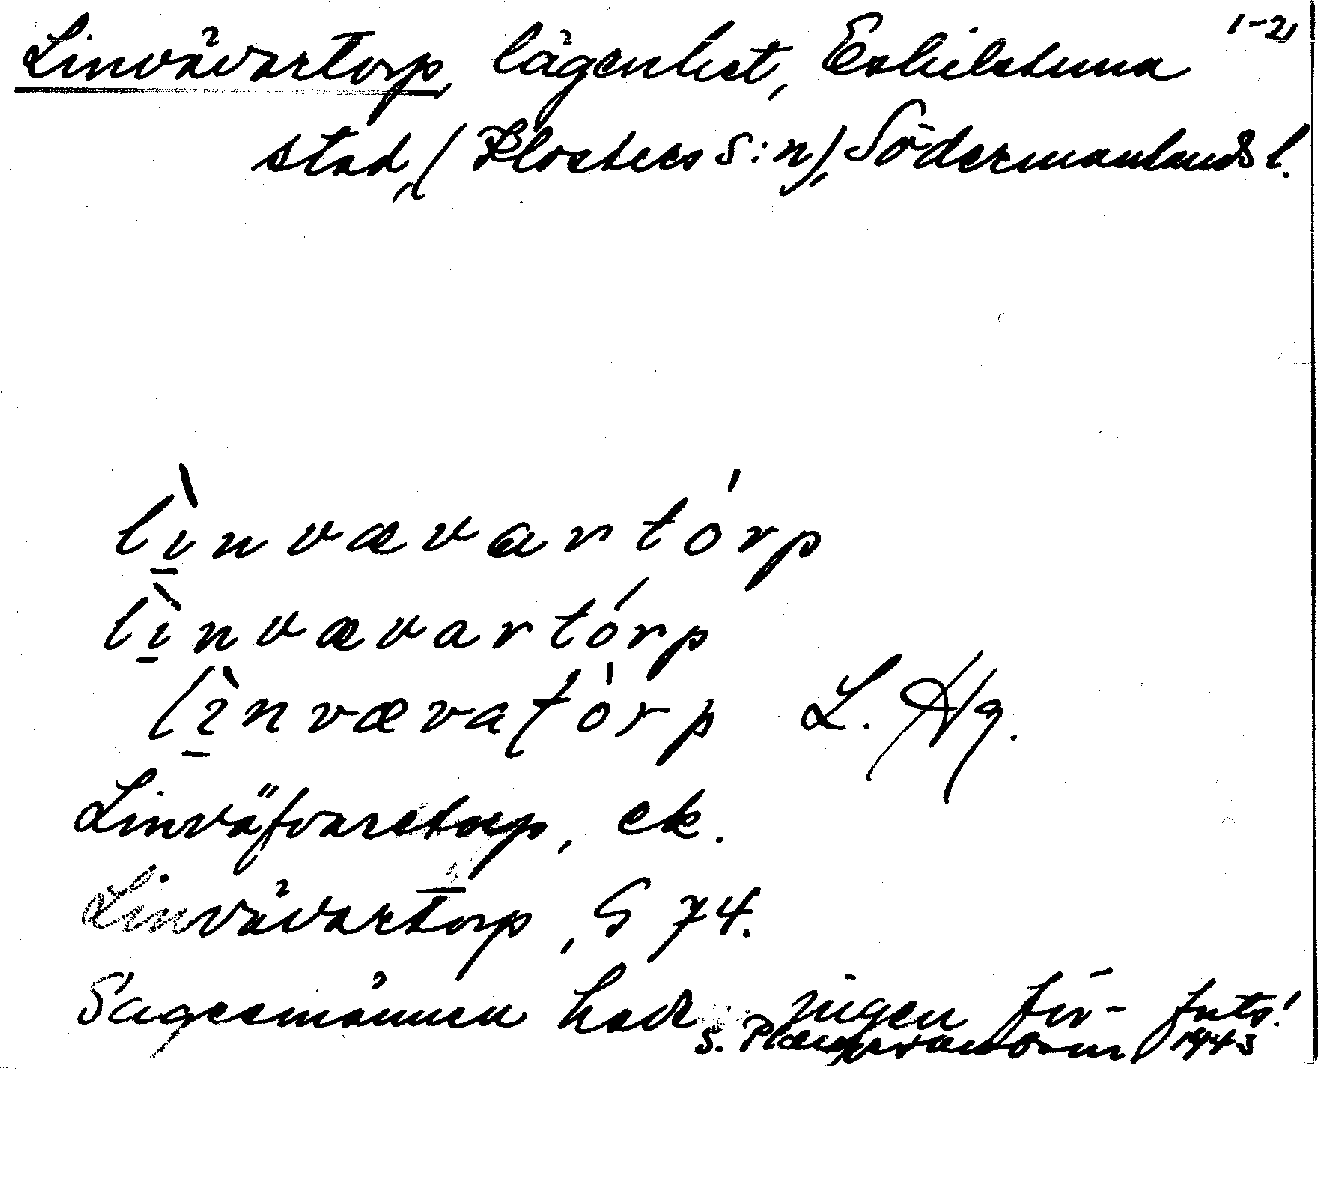 1-2,
Linvävartorp, lägenhet, Eskilstuna
stad, (Klosters S:n), Södermanlands l.
lìnvævartórp
lìnvævartórp
lìnvævatórp L. Hg.
Linväfvaretorp, ek.
Linvävartorp, G 74.
Sagesmännen hade ingen för-
S. 1943